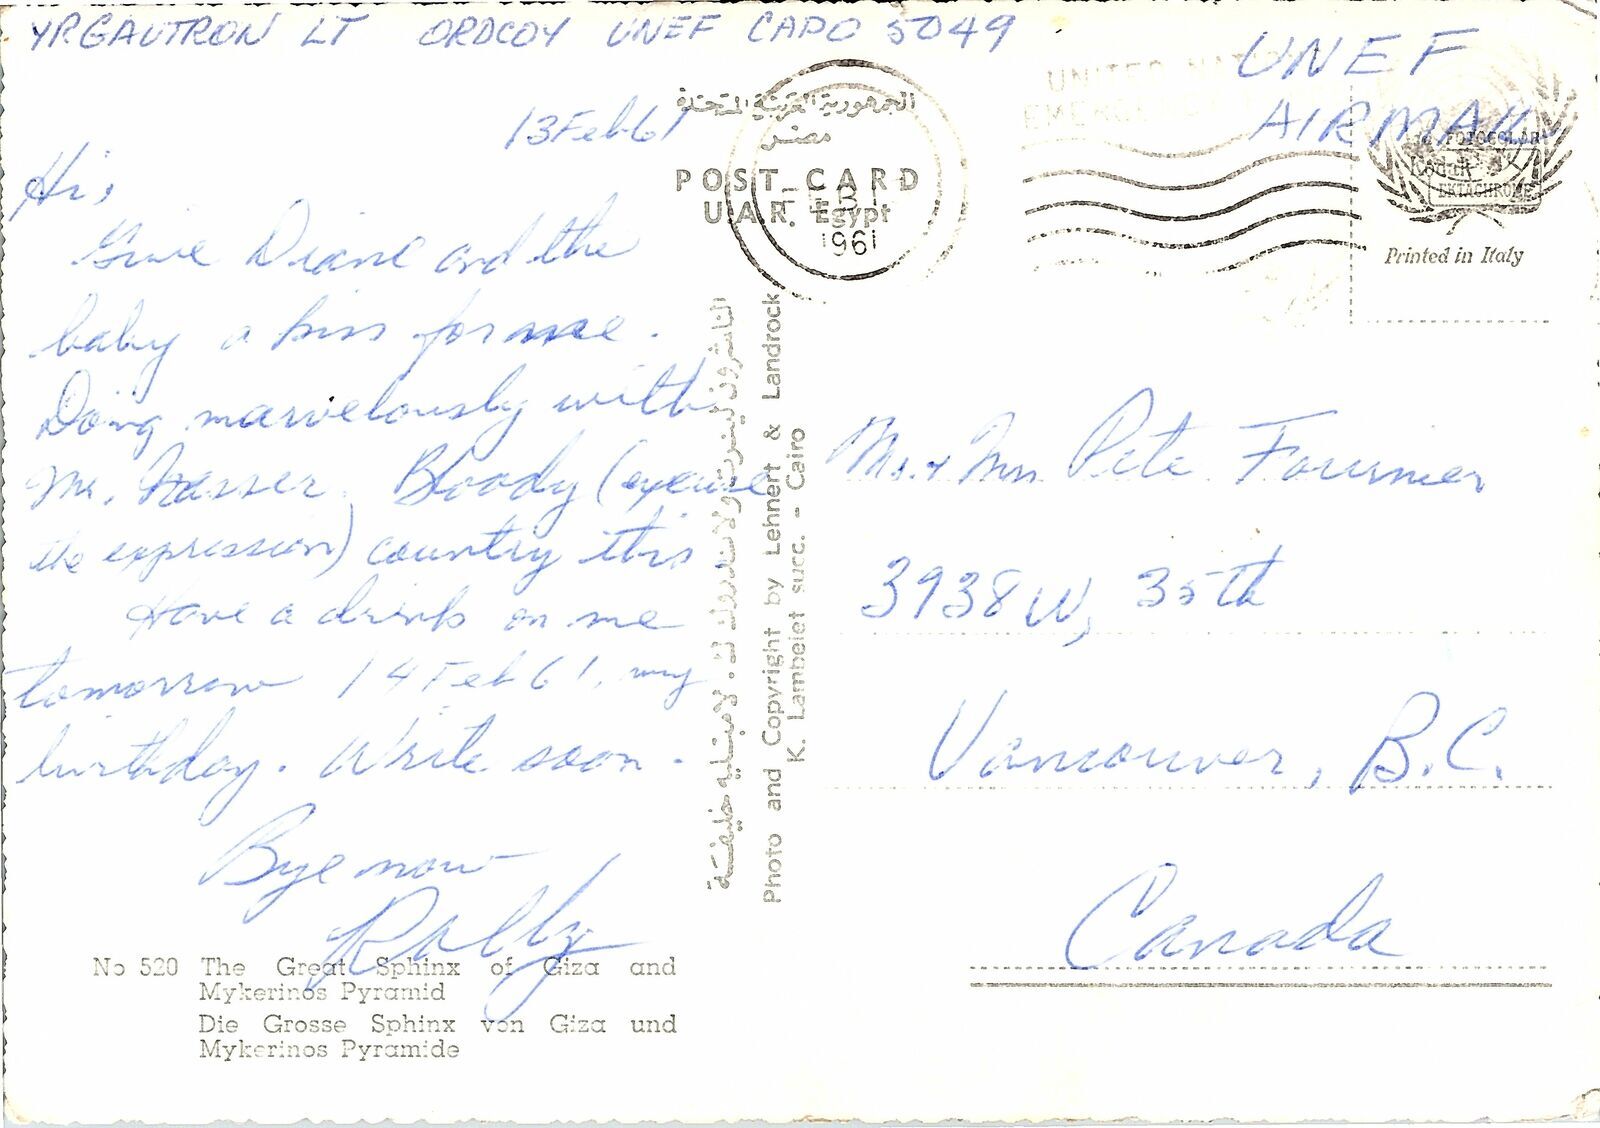 YRGAUTRON LT ORDCOY UNEF CAPO 5049
UNEF
AIRMAIL
13 Feb 61
Hi,
Give Diane and the
baby a kiss for me.
Doing marvelously with
Mr. Nasser. Bloody (excuse
the expression) country this
Have a drink on me
tomorrow 14 Feb 61, my
birthday. Write soon.
Bye now
No 520 The Great Sphinx of Giza and
Mykerinos Pyramid
Die Grosse Sphinx von Giza und
Mykerinos Pyramide
الجمهورية العربية المتحدة
مصر
POST CARD
U.A.R. Egypt
1961
UNITED
Photo and Copyright by Lehnert & Landrock
K. Lambelet succ. - Cairo
FOTOCOLOR
Kodak
EKTACHROME
Printed in Italy
Mr. & Mrs. Pete Fournier
3938 W, 35th
Vancouver, B.C.
Canada